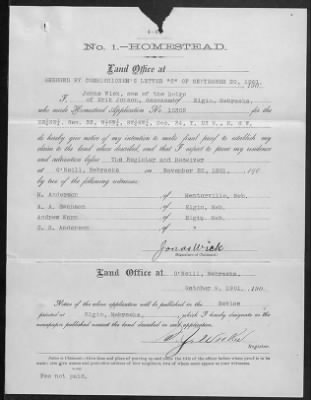 No. 1.—HOMESTEAD.
Land Office at
REQUIRED BY COMMISSIONER'S LETTER "C" OF SEPTEMBER 20, 1901. 190
I, Jonas Wick, one of the heirs
of Erik Jonson, deceased of Elgin, Nebraska,
who made Homestead Application No. 15305
for the
do hereby give notice of my intention to make final proof to establish my
claim to the land above described, and that I expect to prove my residence
and cultivation before The Register and Receiver
at O'Neill, Nebraska on November 22, 1901, 190
by two of the following witnesses:
N. Anderson of Mentorville, Neb.
S. A. Swanson of Elgin, Neb.
Andrew Korn of Elgin, Neb.
C. S. Anderson of "
Jonas Wick
(Signature of Claimant)
Land Office at O'Neill, Nebraska,
October 9, 1901. 190
Notice of the above application will be published in the Review
printed at Elgin, Nebraska, which I hereby designate as the
newspaper published nearest the land described in said application.
Register.
Fee not paid.